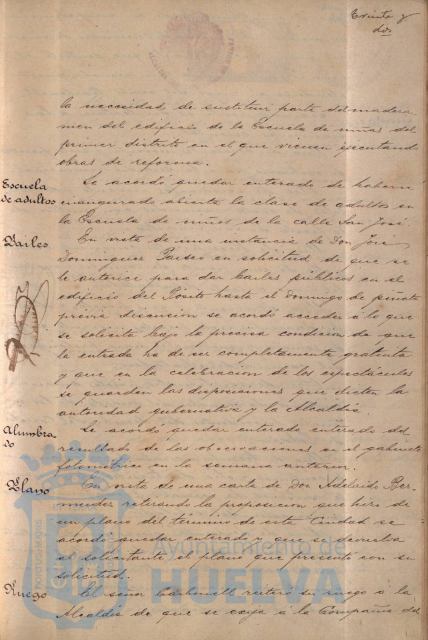 Treinta y
dos
la necesidad de sustituir parte del madera
men del edificio de la Escuela de niñas del
primer distrito en el que vienen ejecutando
obras de reforma.
Escuela
de adultos
Se acordó quedar enterado de haberse
inaugurado abierta la clase de adultos en
la Escuela de niños de la calle San José.
Bailes
En vista de una instancia de Don José
Dominguez en solicitud de que se
le autorice para dar bailes públicos en el
edificio del Pósito hasta el Domingo de piñata
previa discusión se acordó acceder a lo que
se solicita bajo la precisa condición de que
la entrada ha de ser completamente gratuita
y que en la celebración de los espectáculos
se guarden las disposiciones que dicten la
autoridad gubernativa y la Alcaldía.
Alumbra
do
Se acordó quedar enterado enterado del
resultado de las observaciones en el gabinete
fotométrico en la semana anterior.
Plano
En vista de una carta de Don Adelardo Ber
mudez retirando la proposición que hizo de
un plano del termino de esta Ciudad se
acordó quedar enterado y que se devuelva
al solicitante el plano que presentó con su
solicitud.
Ruego
El señor Carbonell reiteró su ruego a la
Alcaldía de que se exija á la Compañia del
Ayuntamiento de
HUELVA